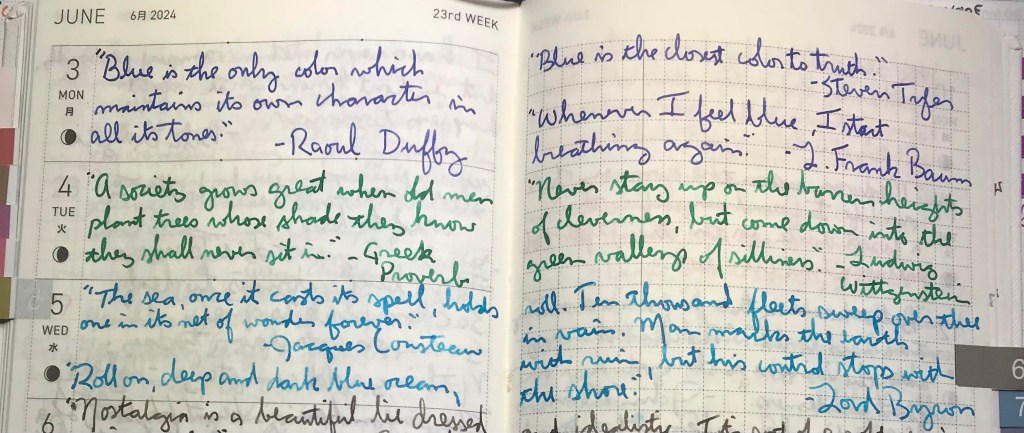 JUNE 6月 2024 23rd WEEK
3
MON
月
"Blue is the only color which
maintains its own character in
all its tones."
-Raoul Duffby
4
TUE
火
"A society grows great when old men
plant trees whose shade they know
they shall never sit in." - Greek
Proverb
5
WED
水
"The sea, once it casts its spell, holds
one in its net of wonder forever."
-Jacques Cousteau
"Roll on, deep and dark blue ocean,
6
"Nostalgia is a beautiful lie dressed
"Blue is the closest color to truth."
-Steven
"Whenever I feel blue, I start
breathing again." -L. Frank Baum
"Never stay up on the barren heights
of cleverness, but come down into the
green valleys of silliness." -Ludwig
Wittgenstein
roll. Ten thousand fleets sweep over thee
in vain. Man marks the earth
with ruin, but his control stops with
the shore."
-Lord Byron
6
7